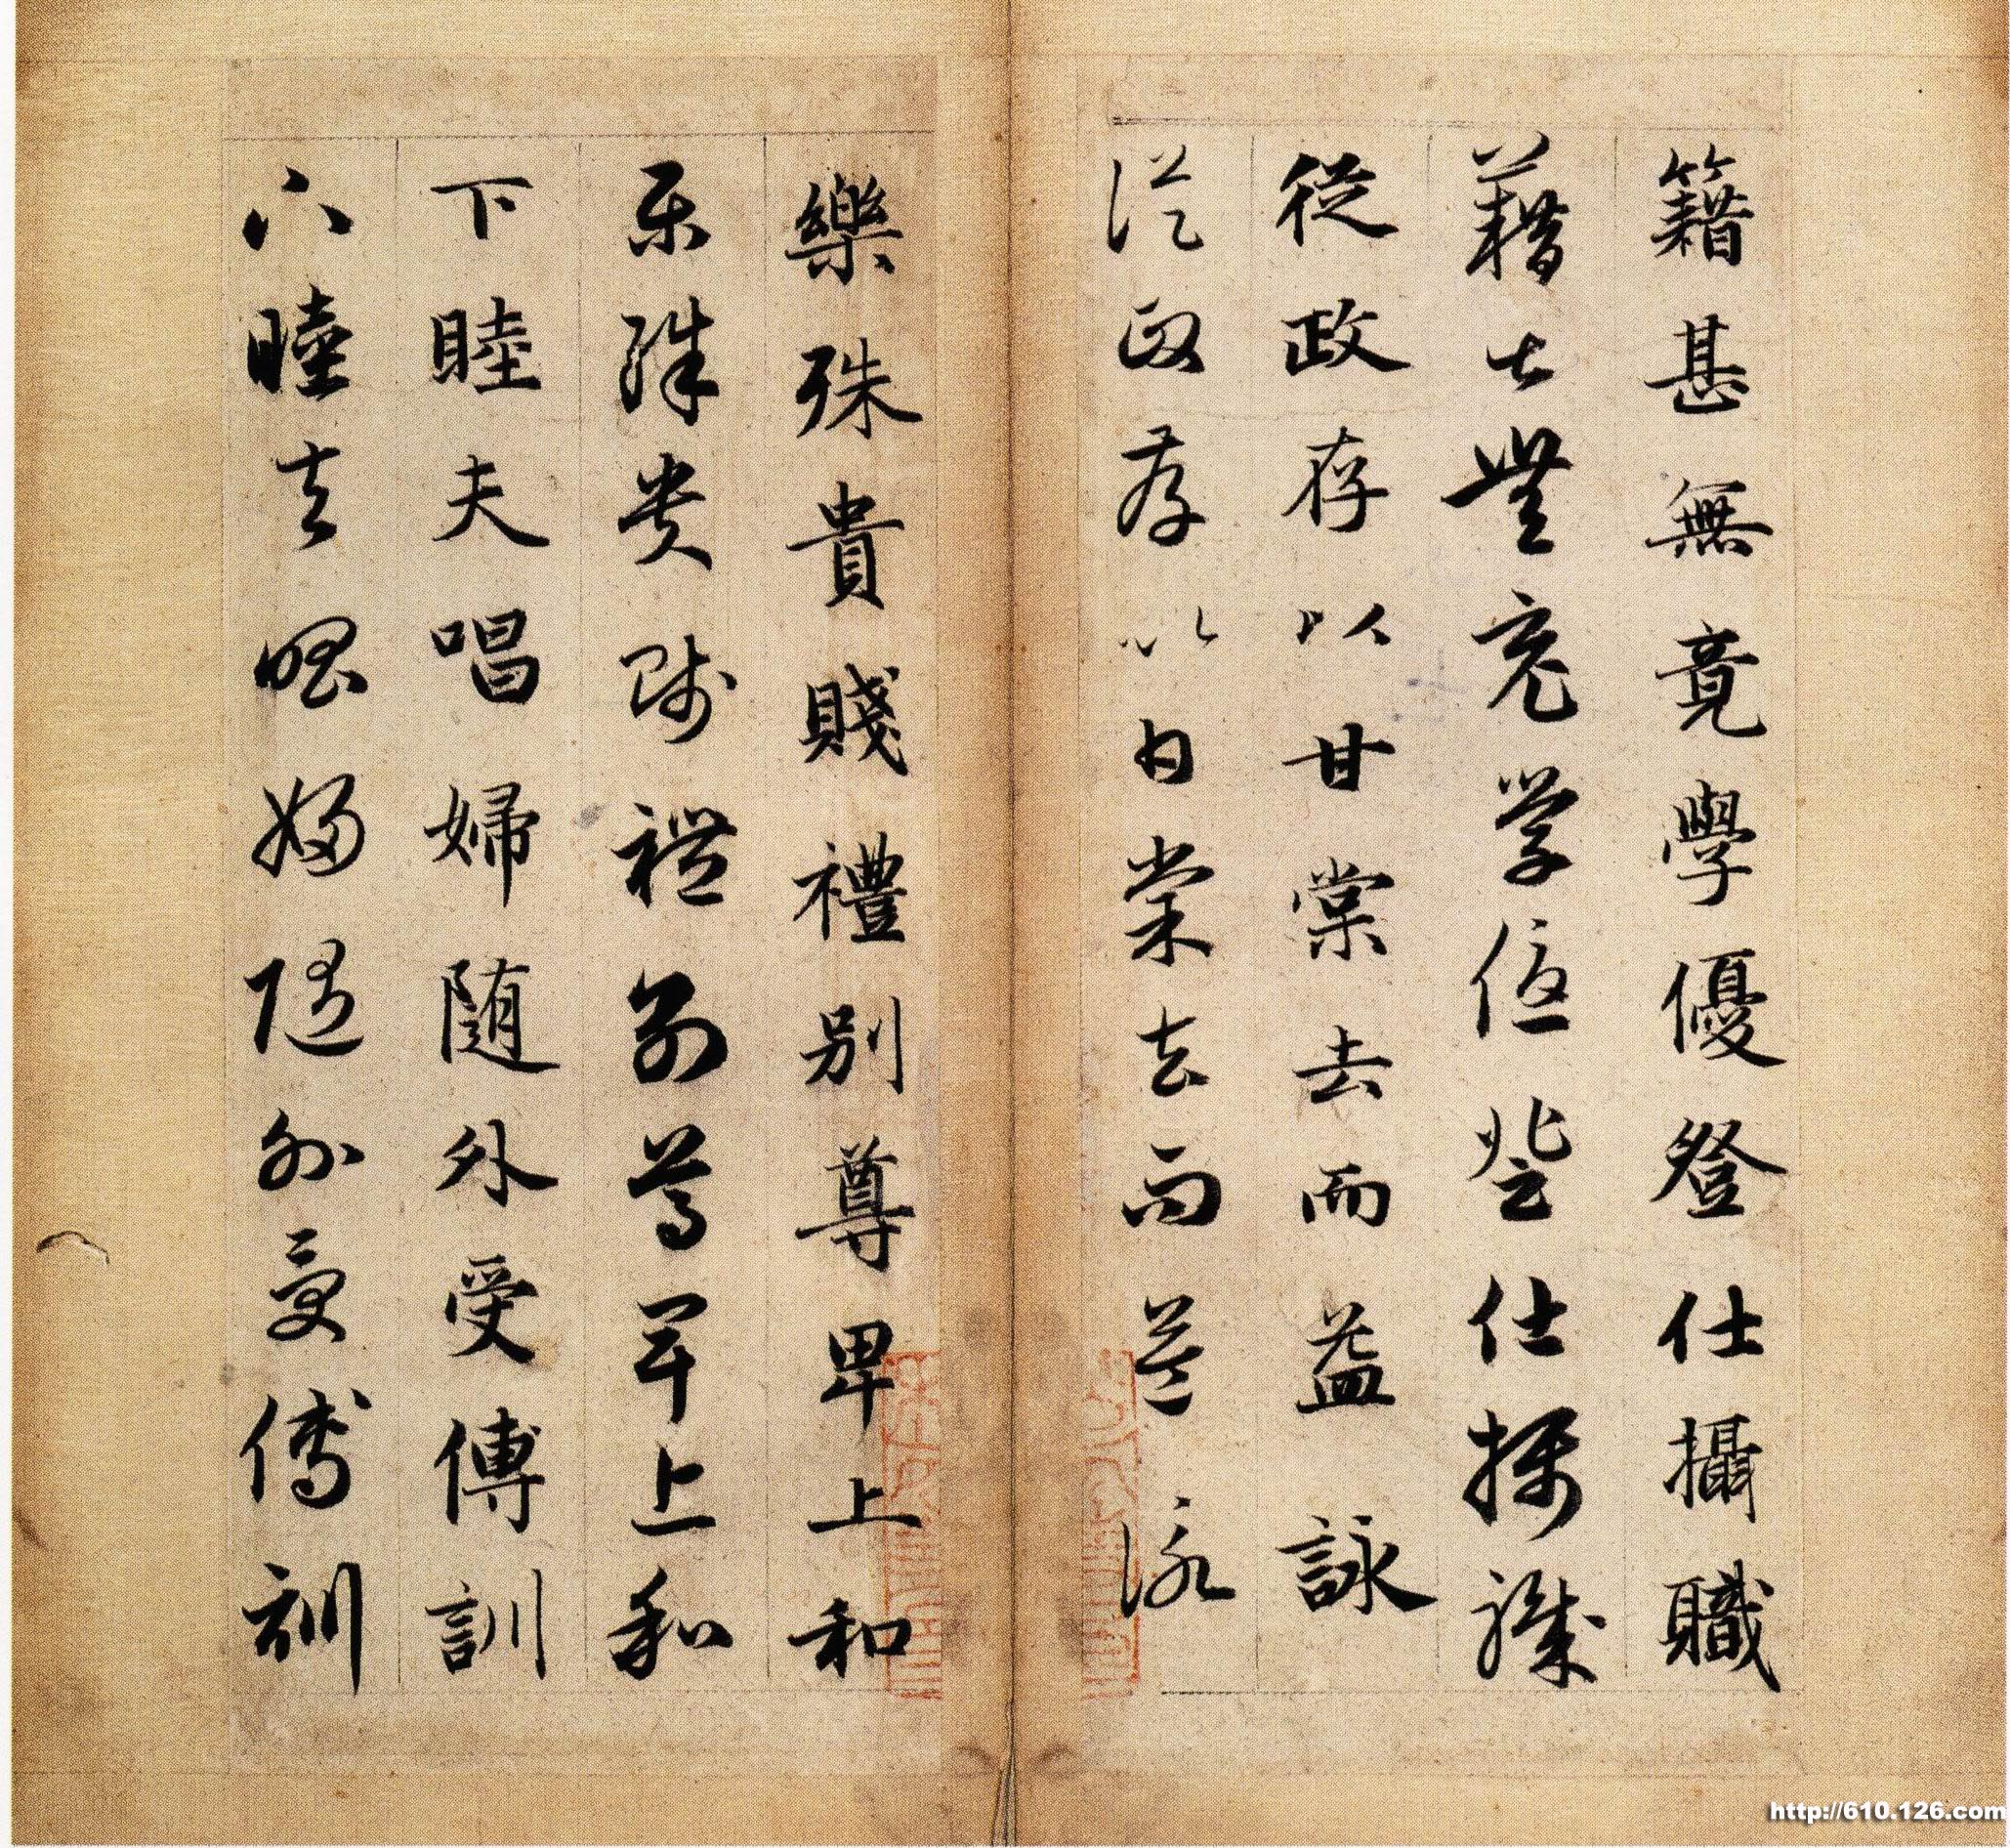 籍甚無竟學優登仕攝職
藉甚無竟学優登仕攝職
從政存以甘棠去而益詠
從政存以甘棠去而益詠
樂殊貴賤禮別尊卑上和
樂殊貴賤禮別尊卑上和
下睦夫唱婦随外受傅訓
下睦夫唱婦随外受傅訓
http://610.126.com